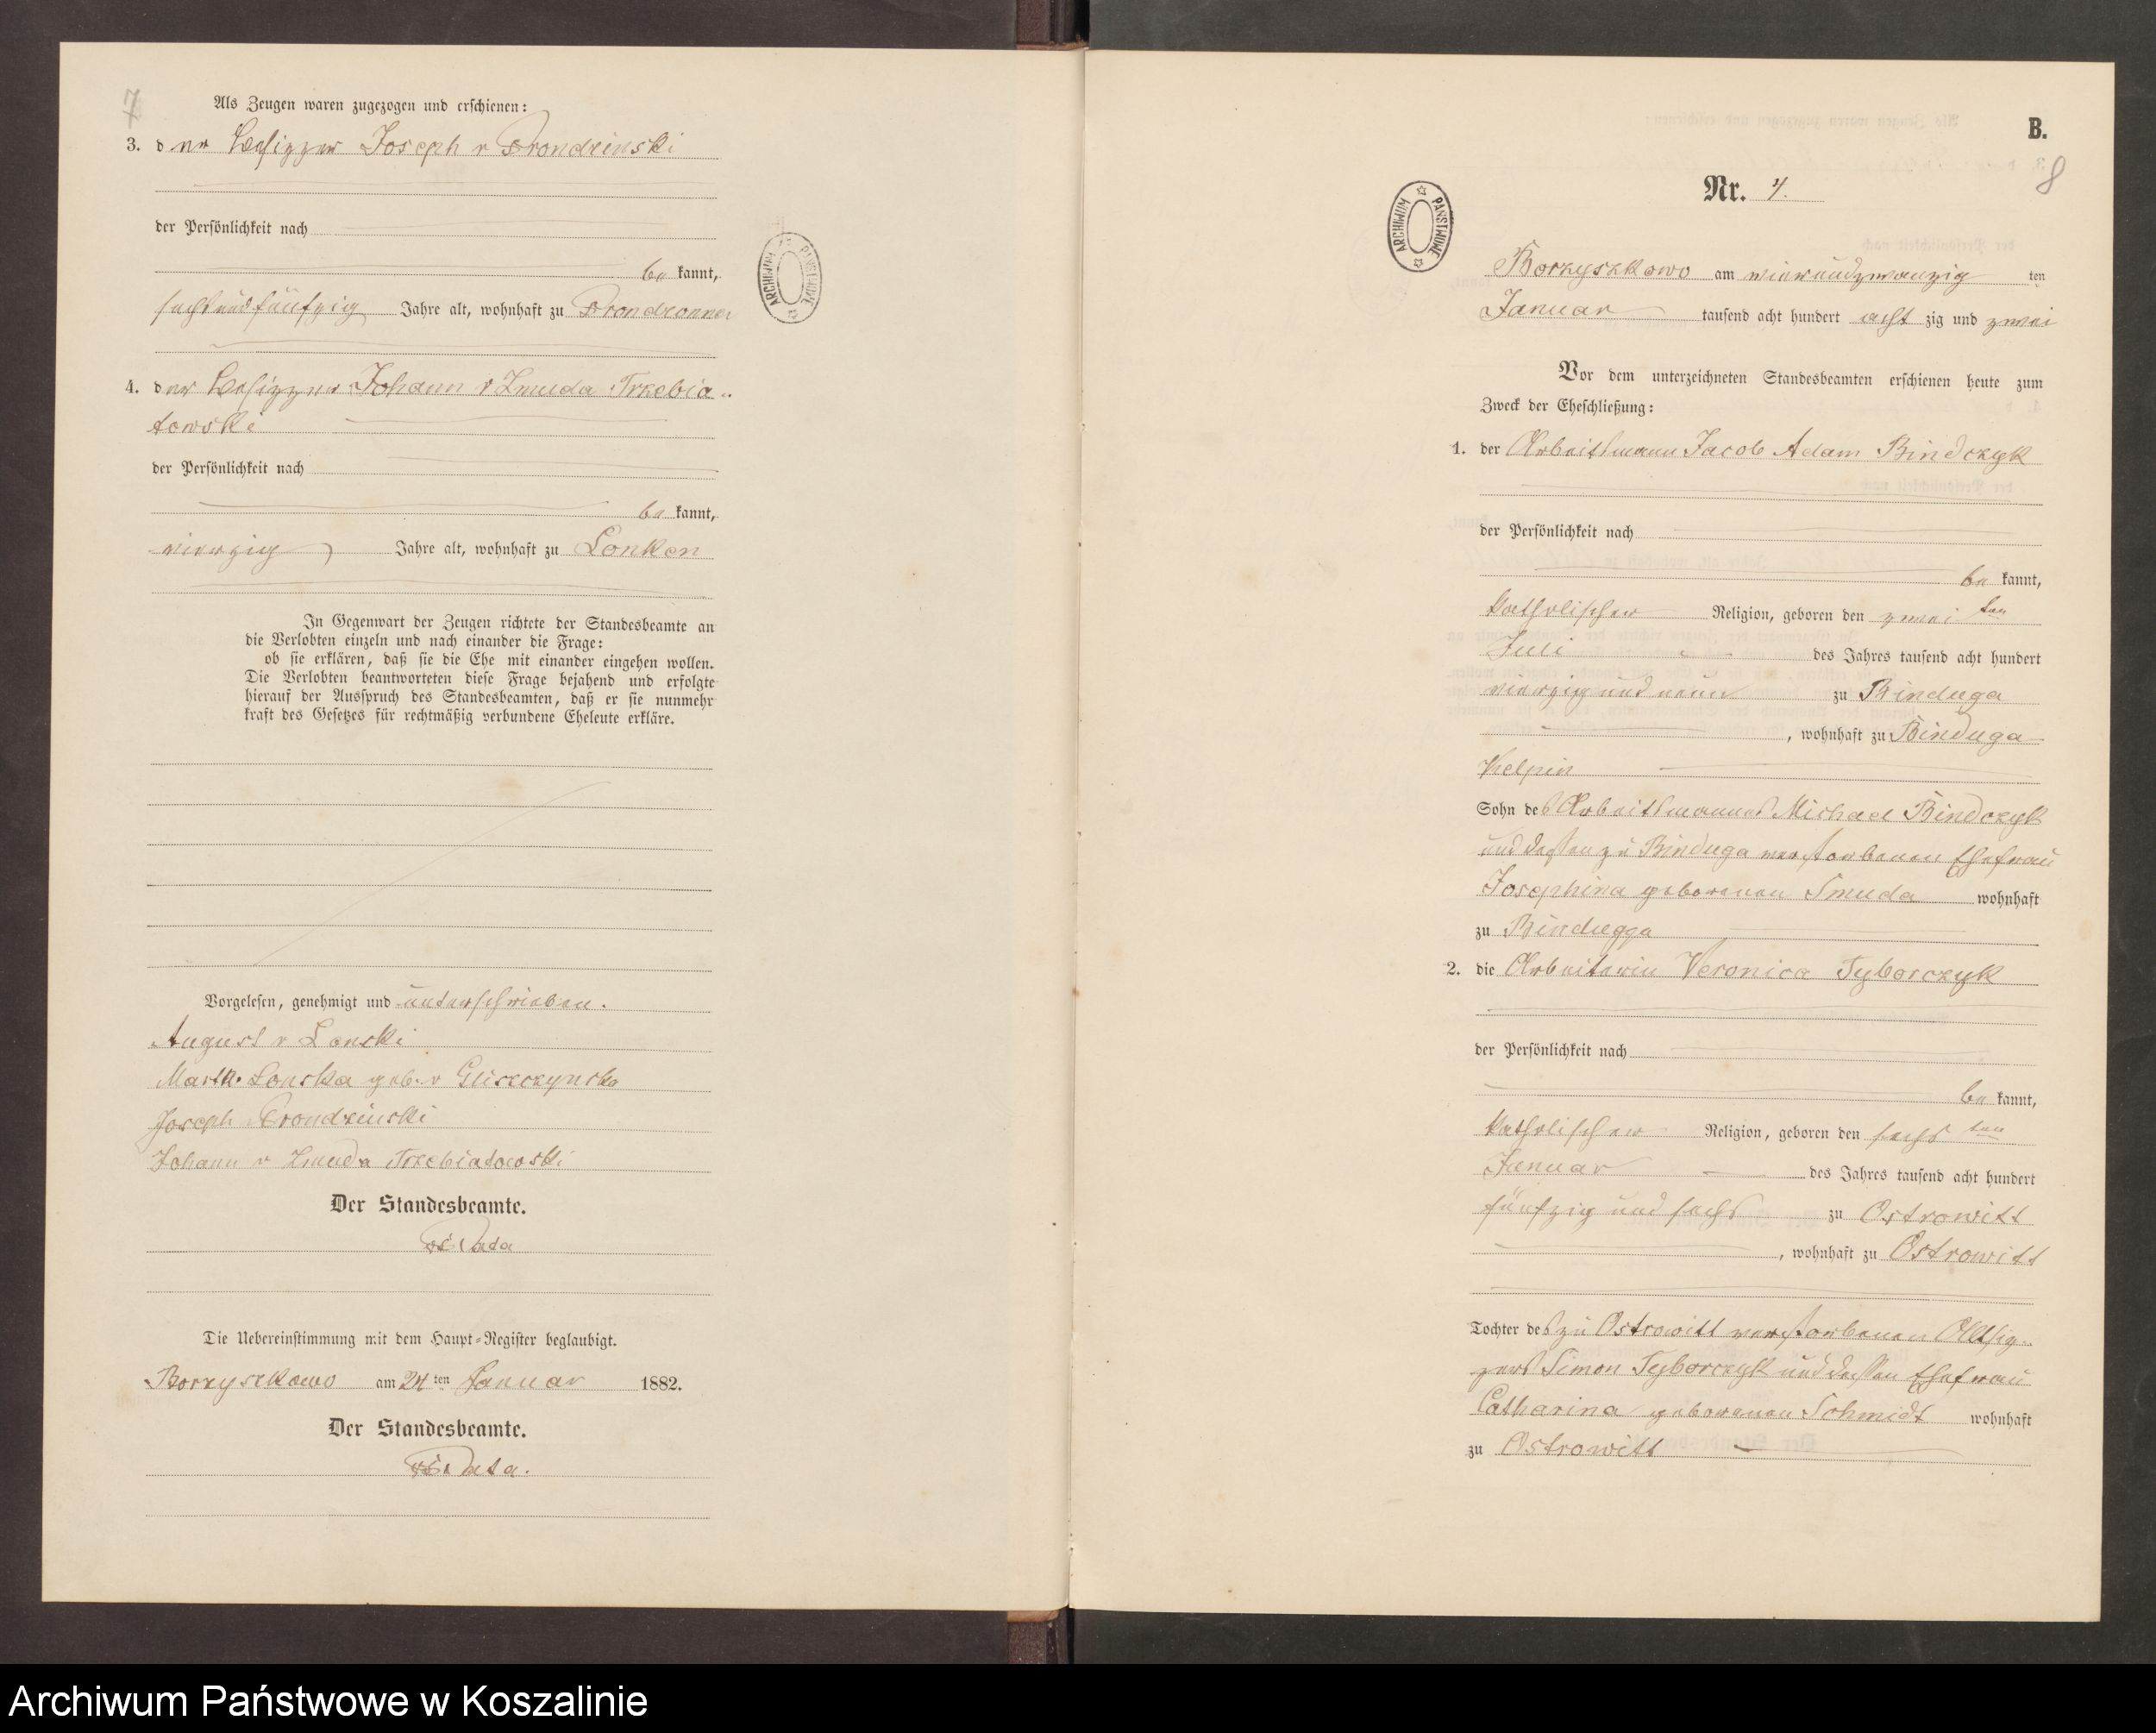 7
Als Zeugen waren zugezogen und erschienen:
3. der Besitzer Joseph v Prondzinski
der Persönlichkeit nach
bekannt,
sechsundfünfzig Jahre alt, wohnhaft zu
4. der Besitzer Johann v Zmuda Trzebia-
towski
der Persönlichkeit nach
bekannt,
vierzig Jahre alt, wohnhaft zu Lonken
In Gegenwart der Zeugen richtete der Standesbeamte an
die Verlobten einzeln und nach einander die Frage:
ob sie erklären, daß sie die Ehe mit einander eingehen wollen.
Die Verlobten beantworteten diese Frage bejahend und erfolgte
hierauf der Ausspruch des Standesbeamten, daß er sie nunmehr
kraft des Gesetzes für rechtmäßig verbundene Eheleute erkläre.
Vorgelesen, genehmigt und unterschrieben.
August v Lonski
Marth. Lonska geb. v Gliszczynska
Joseph Prondzinski
Johann v Zmuda Trzebiatowski
Der Standesbeamte.
Die Uebereinstimmung mit dem Haupt-Register beglaubigt.
Borzyszkowo am 24ten Januar 1882.
Der Standesbeamte.
ARCHIWUM PAŃSTWOWE
B.
8
Nr. 4.
ARCHIWUM PAŃSTWOWE
Borzyszkowo am vierundzwanzigten
Januar tausend acht hundert achtzig und zwei
Vor dem unterzeichneten Standesbeamten erschienen heute zum
Zweck der Eheschließung:
1. der Arbeitsmann Jacob Adam Bindczyk
der Persönlichkeit nach
bekannt,
katholischer Religion, geboren den zweiten
Juli des Jahres tausend acht hundert
vierzig und neun zu Binduga
, wohnhaft zu Binduga
Kelpin
Sohn des Arbeitsmannes Michael Bindczyk
und dessen zu Binduga verstorbenen Ehefrau
Josephina geborenen Smuda wohnhaft
zu Bindugga
2. die Arbeiterin Veronica Tyborczyk
der Persönlichkeit nach
bekannt,
katholischer Religion, geboren den sechsten
Januar des Jahres tausend acht hundert
fünfzig und sechs zu Ostrowitt
, wohnhaft zu Ostrowitt
Tochter des zu Ostrowitt verstorbenen Altsitz-
zers Simon Tyborczyk und dessen Ehefrau
Catharina geborenen Schmidt wohnhaft
zu Ostrowitt
Archiwum Państwowe w Koszalinie